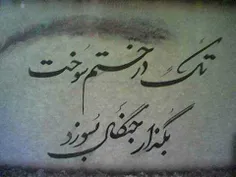 تک درختم سوخت
بگذار جنگل بسوزد